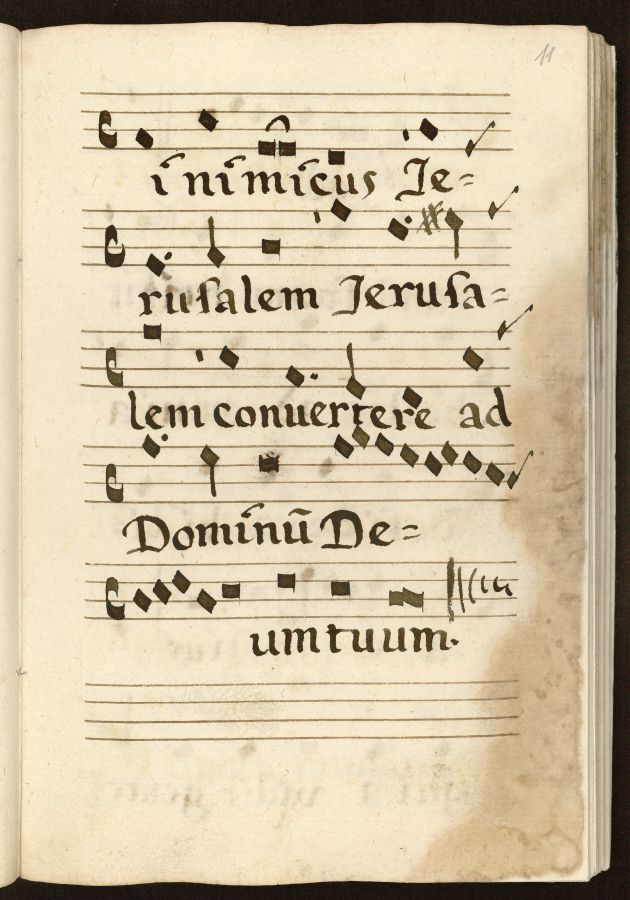 11
inimicus Je=
rusalem Jerusa=
lem conuertere ad
Dominū De=
um tuum.